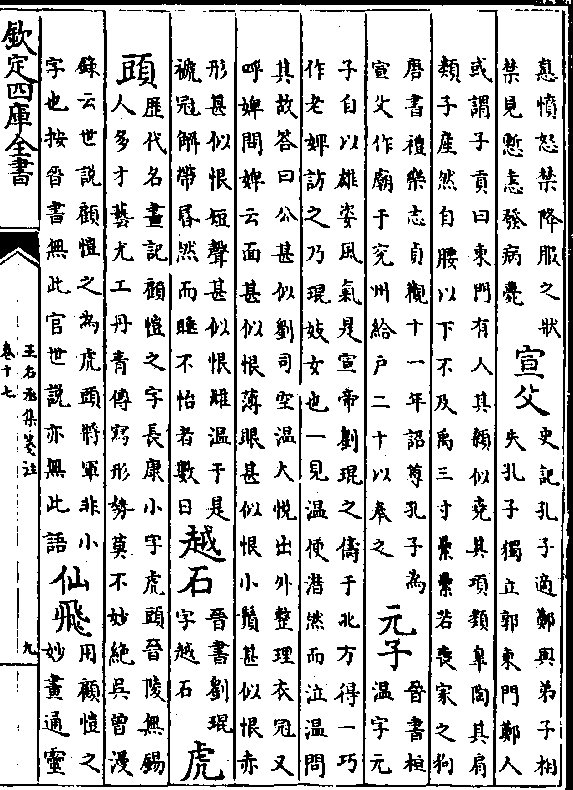 悳憤怒禁降服之狀
禁見慙恚發病薨
宣父
史記孔子適鄭與弟子相
失孔子獨立郭東門鄭人
或謂子貢曰東門有人其顙似堯其項類皋陶其肩
類子產然自腰以下不及禹三寸纍纍若喪家之狗
唐書禮樂志貞觀十一年詔尊孔子為
宣父作廟于兖州給户二十以奉之
元子
晉書桓
温字元
子自以雄姿風氣是宣帝劉琨之儔于北方得一巧
作老婢訪之乃琨妓女也一見温便潸然而泣温問
其故答曰公甚似劉司空温大悦出外整理衣冠又
呼婢問婢云面甚似恨薄眼甚似恨小鬚甚似恨赤
形甚似恨短聲甚似恨雌温于是
褫冠解帶昬然而睡不怡者數日
越石
晉書劉琨
字越石
虎
頭
歷代名畫記顧愷之字長康小字虎頭晉陵無錫
人多才藝尤工丹青傳寫形勢莫不妙絶吳曾漫
錄云世說顧愷之為虎頭將軍非小
字也按晉書無此官世說亦無此語
仙飛
用顧愷之
妙畫通靈
欽定四庫全書
王右丞集箋注
卷十七
九